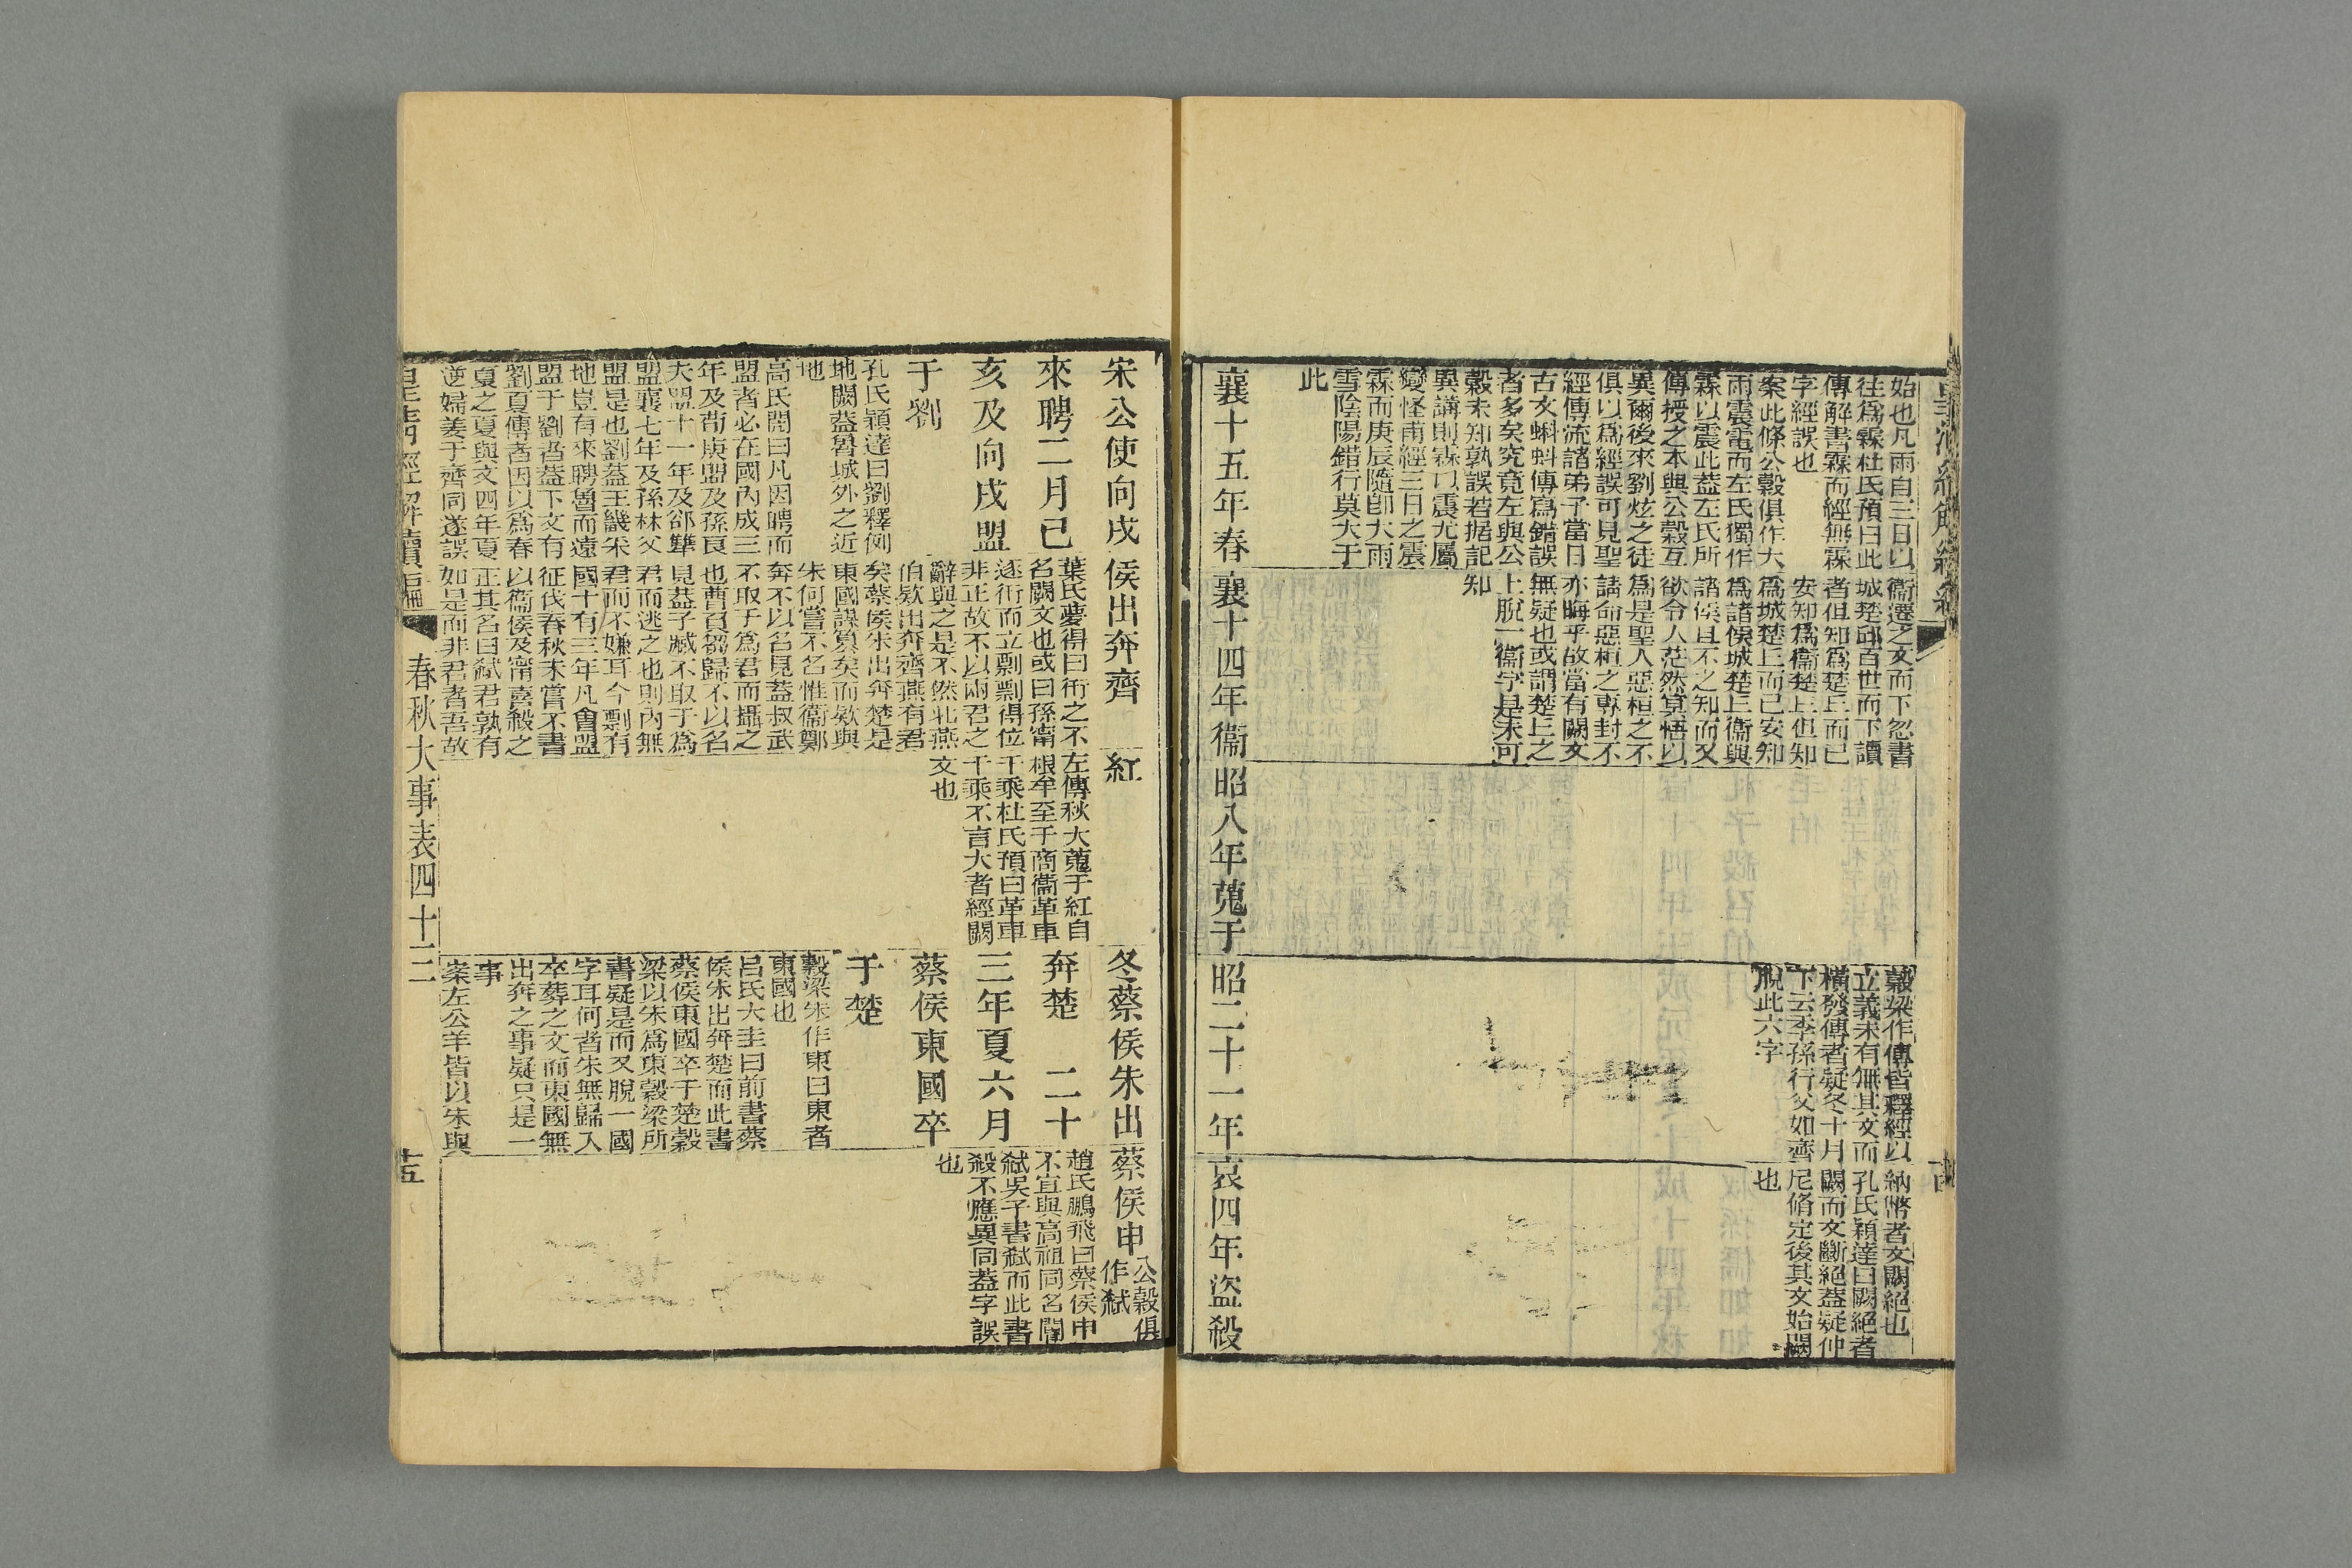 皇清經解續編
始也凡雨自三日以
往爲霖杜氏預曰此
傳解書霖而經無霖
字經誤也
案此條公穀俱作大
雨震電而左氏獨作
霖以震此蓋左氏所
傳授之本與公穀互
異爾後來劉炫之徒
俱以爲經誤可見聖
經傳流諸弟子當日
古文蝌蚪傳寫錯誤
者多矣究竟左與公
穀未知孰誤若据記
異講則霖以震尤屬
變怪甫經三日之震
霖而庚辰隨卽大雨
雪陰陽錯行莫大于
此
襄十五年春
衞遷之文而下忽書
城楚邱百世而下讀
者但知爲楚丘而已
安知爲衞楚丘但知
爲城楚丘而已安知
爲諸侯城楚丘衞與
諸侯且不之知而又
欲令人茫然莫悟以
爲是聖人惡桓之不
請命惡桓之專封不
亦晦乎故當有闕文
無疑也或謂楚丘之
上脫一衞字是未可
知
襄十四年衞
昭八年蒐于
穀梁作傳皆釋經以
立義未有無其文而
橫發傳者疑冬十月
下云季孫行父如齊
脫此六字
昭二十一年
納幣者文闕絕也
孔氏穎達曰闕絕者
闕而文斷絕蓋疑仲
尼脩定後其文始闕
也
哀四年盜殺
宋公使向戌
來聘二月己
亥及向戌盟
于劉
孔氏穎達曰劉釋例
地闕蓋魯城外之近
地
高氏閌曰凡因聘而
盟者必在國內成三
年及荀庚盟及孫良
夫盟十一年及郤犨
盟襄七年及孫林父
盟是也劉蓋王畿采
地豈有來聘魯而遠
盟于劉者蓋下文有
劉夏傳者因以爲春
夏之夏與文四年夏
逆婦姜于齊同遂誤
侯出奔齊
葉氏夢得曰衎之不
名闕文也或曰孫甯
逐衎而立剽剽得位
非正故不以兩君之
辭與之是不然北燕
伯欵出奔齊燕有君
矣蔡侯朱出奔楚是
東國謀簒矣而欵與
朱何嘗不名惟衞鄭
奔不以名見蓋叔武
不取于爲君而攝之
也曹負芻歸不以名
見蓋子臧不取于爲
君而逃之也則內無
君而不嫌耳今剽有
國十有三年凡會盟
征伐春秋未嘗不書
以衞侯及甯喜殺之
正其名曰弑君孰有
如是而非君者吾故
紅
左傳秋大蒐于紅自
根牟至于商衞革車
千乘杜氏預曰革車
千乘不言大者經闕
文也
冬蔡侯朱出
奔楚　二十
三年夏六月
蔡侯東國卒
于楚
穀梁朱作東曰東者
東國也
呂氏大圭曰前書蔡
侯朱出奔楚而此書
蔡侯東國卒于楚穀
梁以朱爲東穀梁所
書疑是而又脫一國
字耳何者朱無歸入
卒葬之文而東國無
出奔之事疑只是一
事
案左公羊皆以朱與
蔡侯申公穀俱作弑
趙氏鵬飛曰蔡侯申
不宜與高祖同名閽
弑吳子書弑而此書
殺不應異同蓋字誤
也
皇淸經解續編
春秋大事表四十二
十五